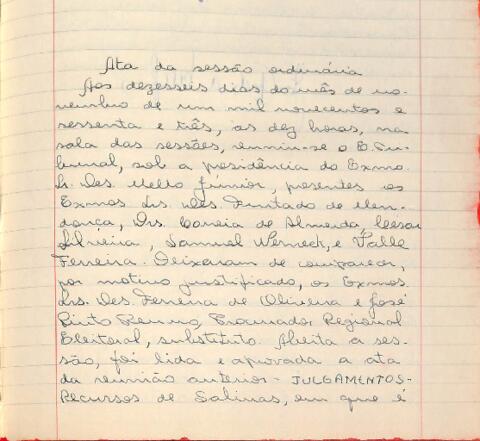 Ata da sessão ordinária
Aos dezesseis dias do mês de no-
vembro de um mil novecentos e
sessenta e três, as dez horas, na
sala das sessões, reuniu-se o E. Tri-
bunal, sob a presidência do Exmo.
Sr. Des. Mello Júnior, presentes os
Exmos Srs. Des. Furtado de Men-
donça, Drs. Correia de Almeida, Cesar
Silveira, Samuel Werneck, e Valle
Ferreira. Deixaram de comparecer,
por motivo justificado, os Exmos.
Srs. Des. Ferreira de Oliveira e José
Pinto Renno, Procurador Regional
Eleitoral, substituto. Aberta a ses-
são, foi lida e aprovada a ata
da reunião anterior - JULGAMENTOS -
Recursos de Salinas, em que é